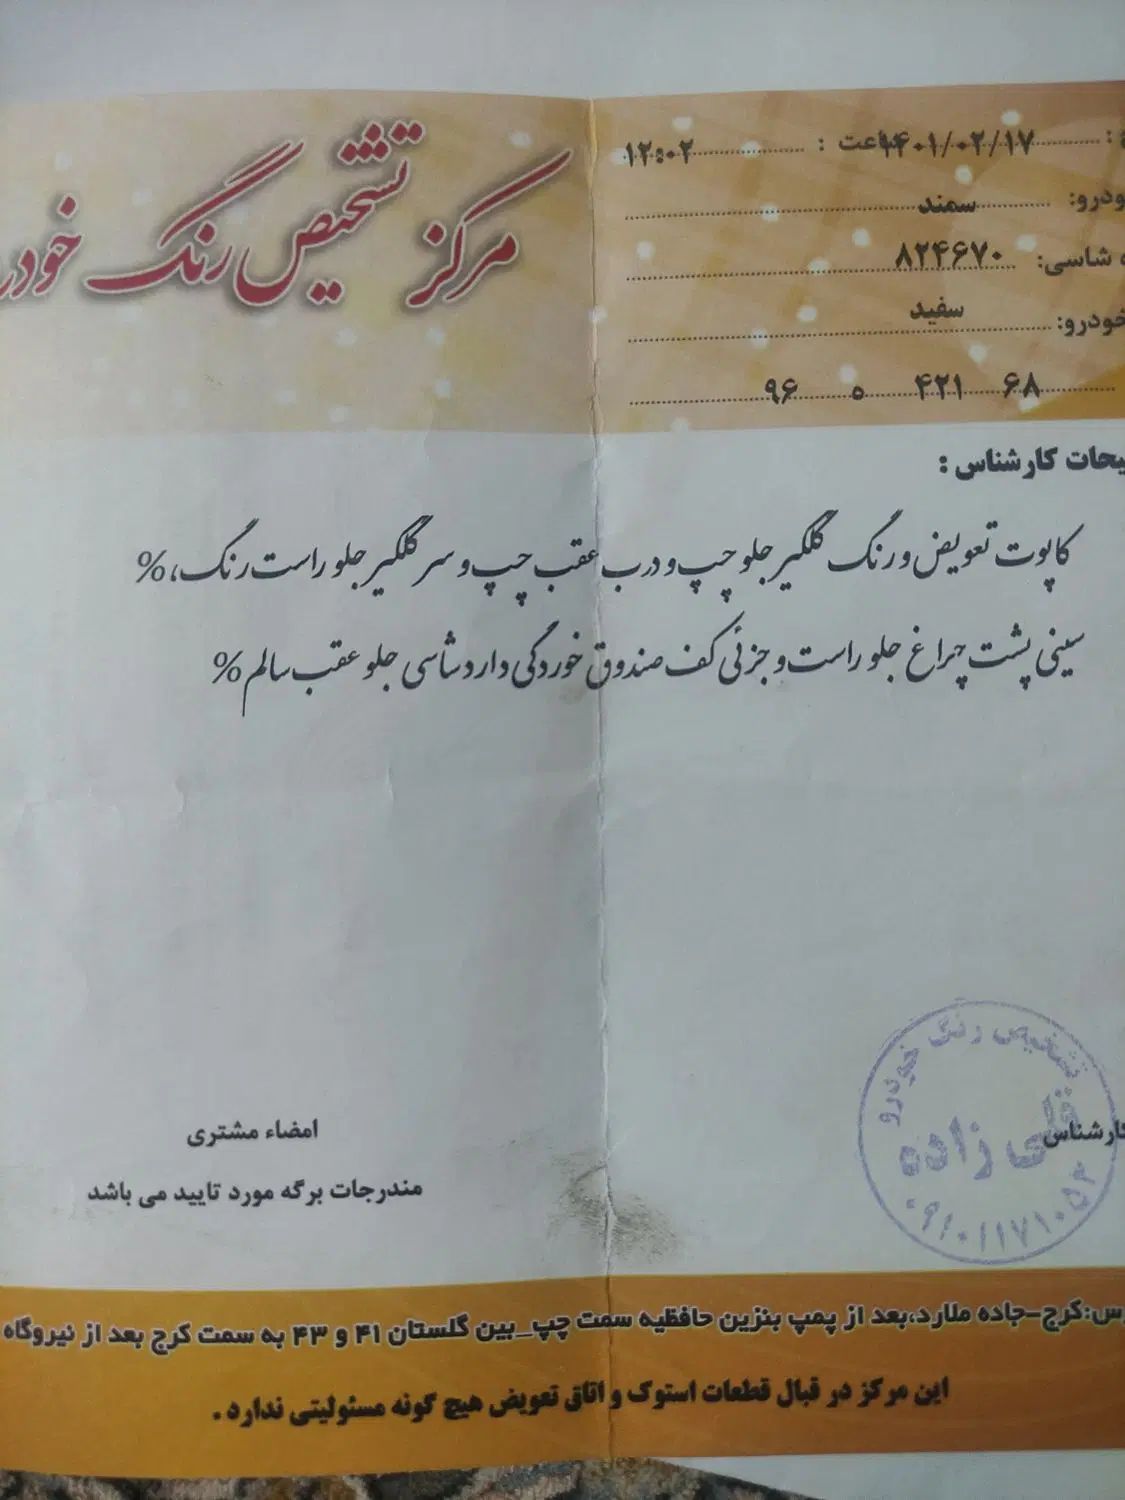 مرکز تشخیص رنگ خودر
ساعت : ۱۴۰۱/۰۲/۱۷ ۱۲:۰۲
سمند
شاسی: ۸۲۴۶۷۰
خودرو: سفید
۶۸ ۴۲۱ ۵ ۹۶
کارشناس :
کاپوت تعویض و رنگ گلگیر جلو چپ و درب عقب چپ و سر گلگیر جلو راست رنگ،%
سینی پشت چراغ جلو راست و جزئی کف صندوق خوردگی دارد شاسی جلو عقب سالم%
تشخیص رنگ خودرو
قلی زاده
۰۹۱۰۱۱۷۱۰۵۲
کارشناس
امضاء مشتری
مندرجات برگه مورد تایید می باشد
کرج-جاده ملارد،بعد از پمپ بنزین حافظیه سمت چپ_بین گلستان ۴۱ و ۴۳ به سمت کرج بعد از نیروگاه
این مرکز در قبال قطعات استوک و اتاق تعویض هیچ گونه مسئولیتی ندارد .